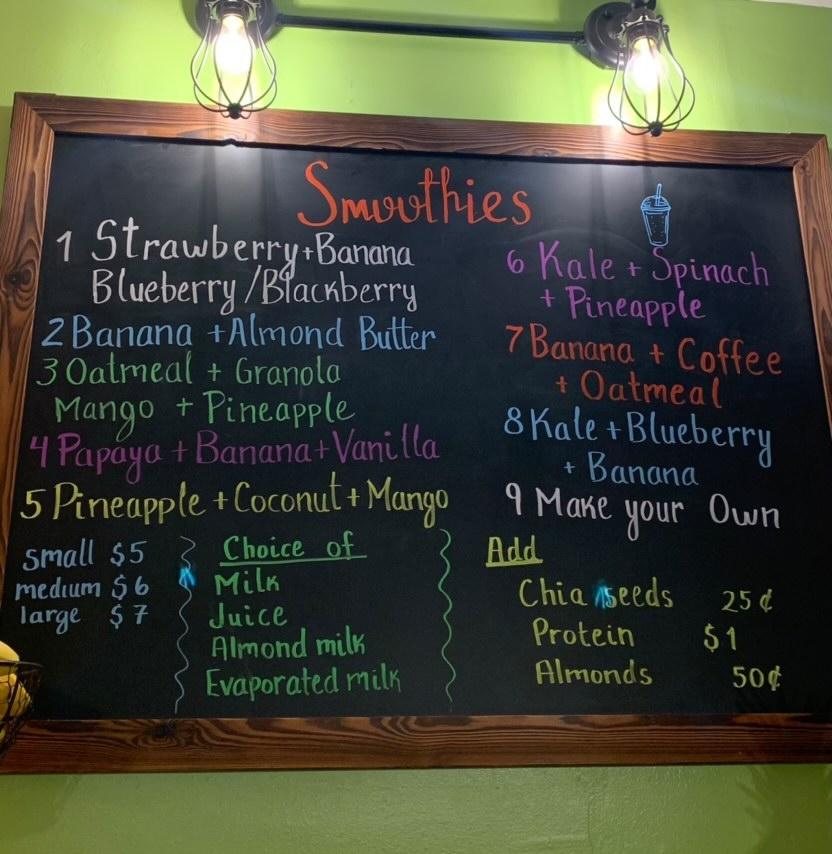 Smoothies
1 Strawberry+Banana
Blueberry/Blackberry
2 Banana + Almond Butter
3 Oatmeal + Granola
Mango + Pineapple
4 Papaya + Banana + Vanilla
5 Pineapple + Coconut + Mango
6 Kale + Spinach
+ Pineapple
7 Banana + Coffee
+ Oatmeal
8 Kale + Blueberry
+ Banana
9 Make your Own
small $5
medium $6
large $7
Choice of
Milk
Juice
Almond milk
Evaporated milk
Add
Chia seeds 25¢
Protein $1
Almonds 50¢